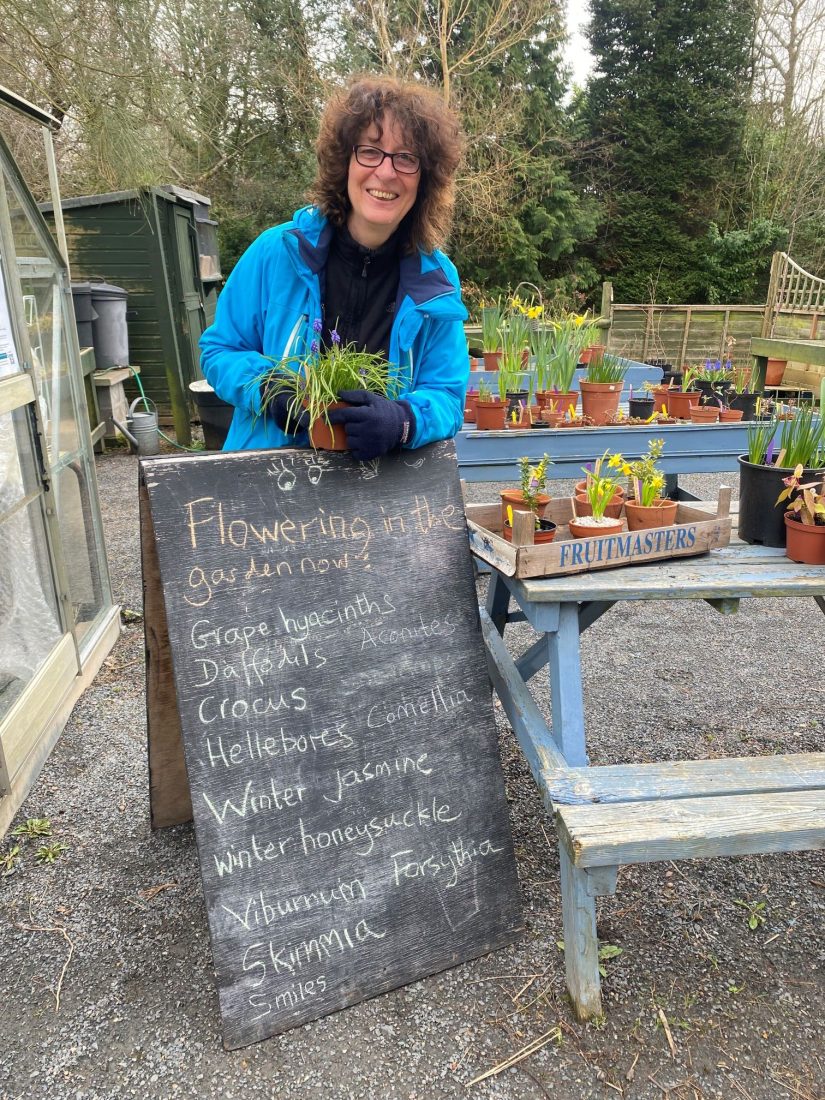 Flowering in the
garden now!
Grape hyacinths
Daffodils Aconites
Crocus
Hellebores Camellia
Winter Jasmine
Winter honeysuckle
Viburnum Forsythia
Skimmia
Smiles
FRUITMASTERS